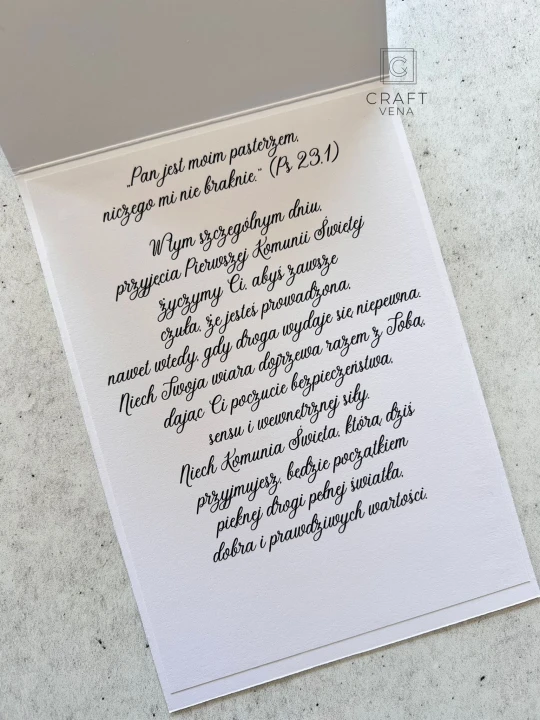 CRAFT
VENA
„Pan jest moim pasterzem,
niczego mi nie braknie.” (Ps 23,1)
W tym szczególnym dniu,
przyjęcia Pierwszej Komunii Świętej
życzymy Ci, abyś zawsze
czuła, że jesteś prowadzona,
nawet wtedy, gdy droga wydaje się niepewna.
Niech Twoja wiara dojrzewa razem z Tobą,
dając Ci poczucie bezpieczeństwa,
sensu i wewnętrznej siły.
Niech Komunia Święta, którą dziś
przyjmujesz, będzie początkiem
pięknej drogi pełnej światła,
dobra i prawdziwych wartości.